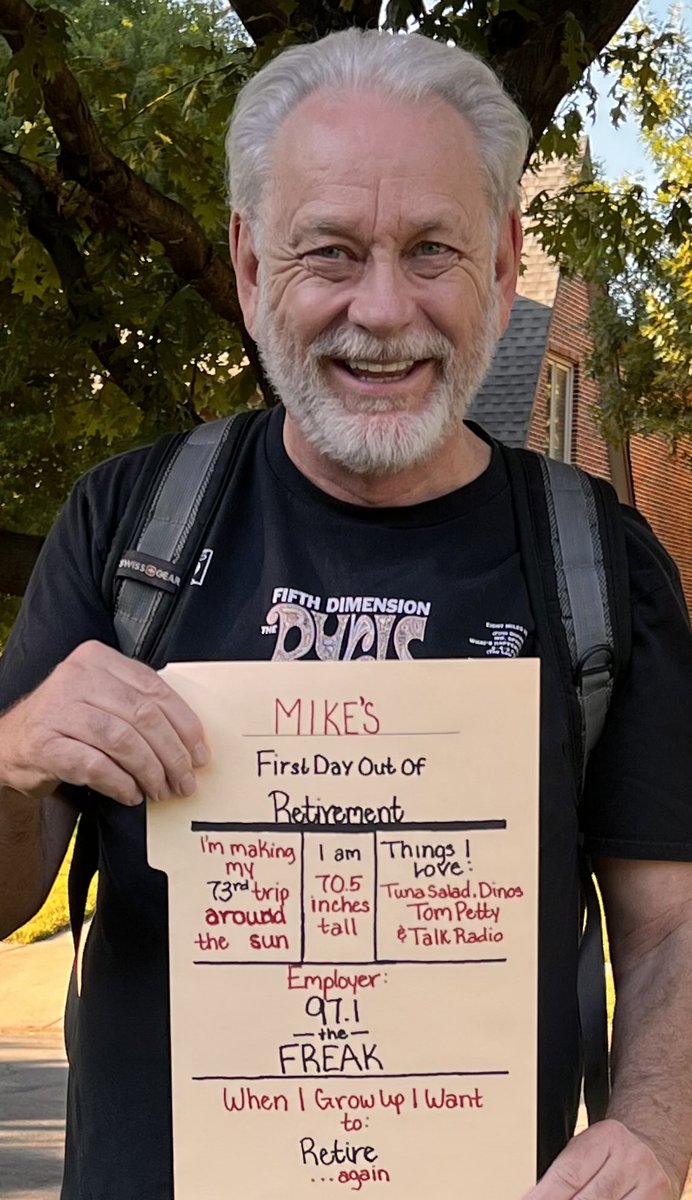 SWISSGEAR
FIFTH DIMENSION
THE
BYRDS
EIGHT MILES
MIKE'S
First Day Out Of
Retirement
I'm making
my
73rd trip
around
the sun
I am
70.5
inches
tall
Things I
Love:
Tuna Salad, Dinos
Tom Petty
& Talk Radio
Employer:
97.1
— the —
FREAK
When I Grow Up I Want
to:
Retire
...again